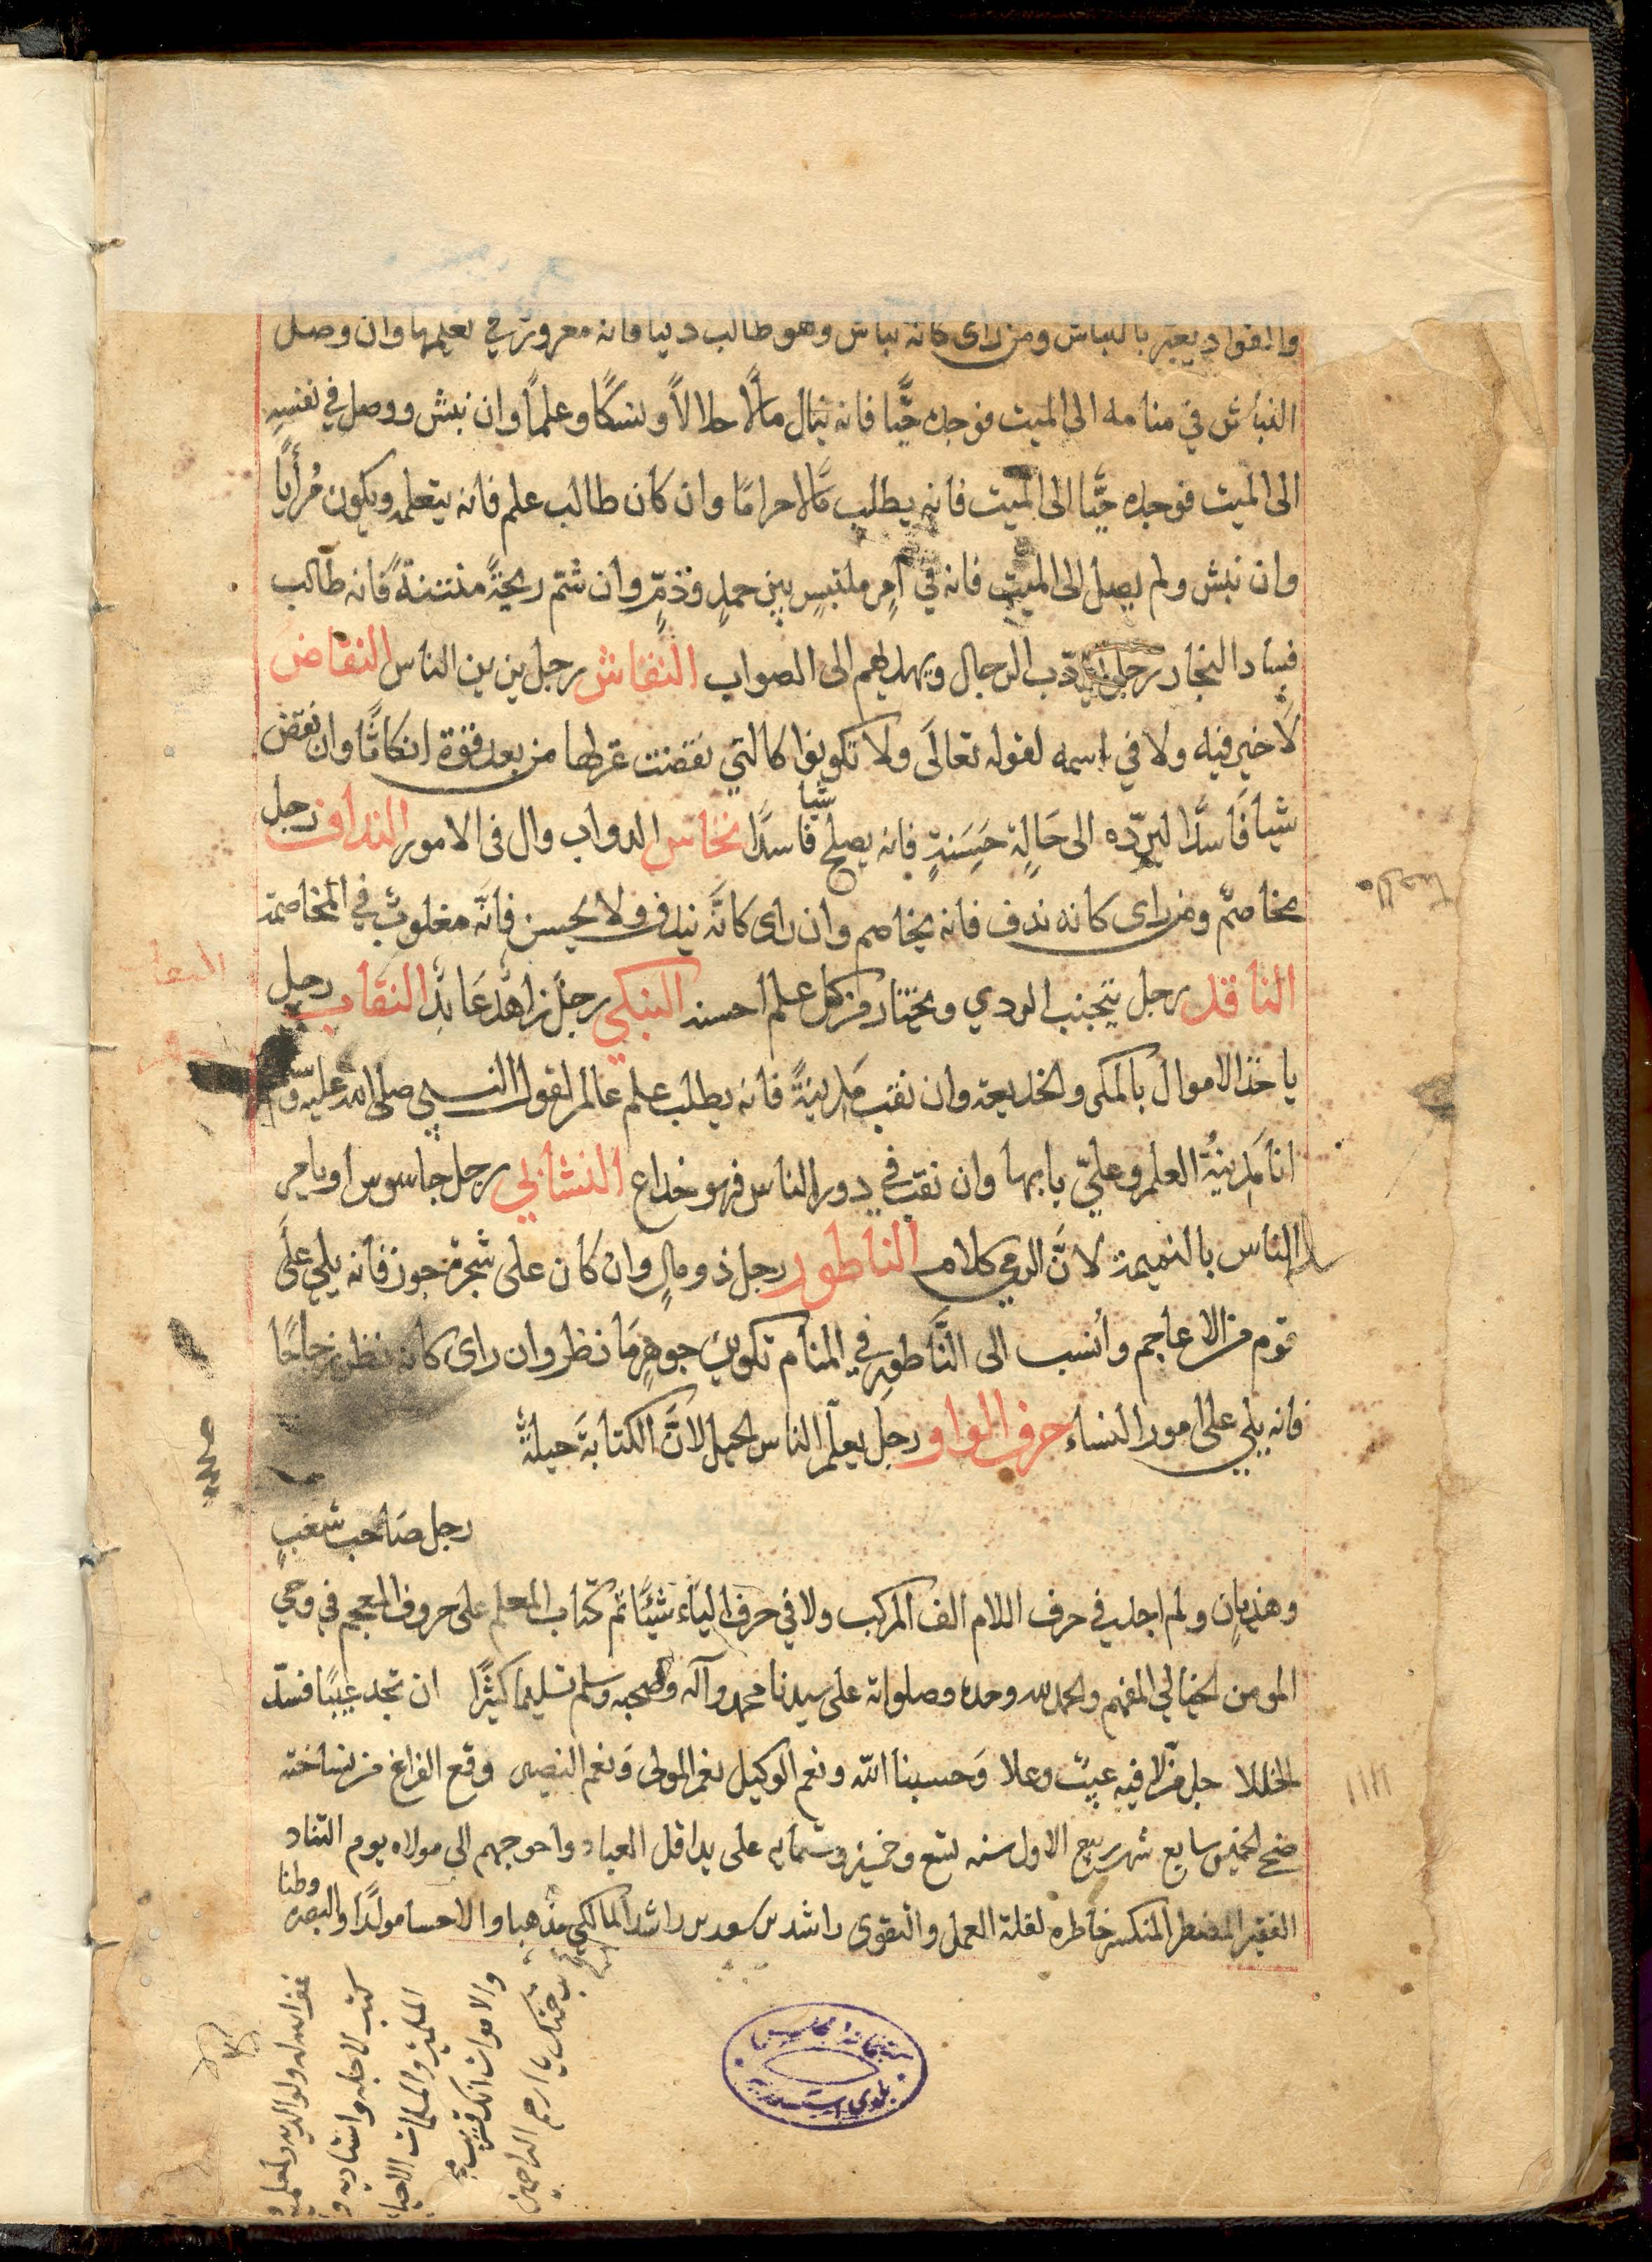 والفواد يعبر بالنباش ومن رای كانه نباش وهو طالب دنيا فانه مغرور في تعليمها وان وصل
النباش في منامه الى الميت فوجده حيًّا فانه ينال مالًا حلالاً ونسكًا وعلمًا وان نبش ووصل في نفسه
الى الميت فوجده حيًّا الى الميت فانه يطلب مالًا حرامًا وان كان طالب علم فانه يتعلمه ويكون مُرأيًا
وان نبش ولم يصل الى الميت فانه في امرٍ ملتبسٍ بين حمدٍ وذمٍّ وان شتم ريحةً منتنةً فانه طالب
فساد النجار رجل يؤدّب الرجال ويهديهم الى الصواب النقاش رجل يزين الناس النقاض
لا خير فيه ولا في اسمه لقوله تعالى ولا تكونوا كالتي نقضت غزلها من بعد قوة انكاثًا وان نقض
شيا فاسدًا ليردّه الى حَالةٍ حَسَنةٍ فانه يصلح شيا فاسدًا نخاس الدواب وال فى الامور النداف رجل
مخاصمٌ ومن رای كانه ندف فانه يخاصم وان رای كانّه يندف ولا يحسن فانّه مغلوبٌ في المخاصمة
الناقد رجل يتجنب الردي ويختار من كل علم احسنه البنكي رجل زاهدٌ عَابدٌ النقاب رجل
ياخذ الاموال بالمكر والخديعة وان نقب مَدينةً فانه يطلب علم عالم لقول النبي صلى الله عليه وسلم
انا مَدينةُ العلم وعليّ بابها وان نقب في دور الناس فهو خداع النشابي رجل جاسوس او يامر
الناس بالنميمة لانّ الرمي كلام الناطور رجل ذو مالٍ وان كان على شجرة جوز فانه يلي على
قوم من الاعاجم وانسب الى النَّاطور في المنام تكوين جوهرٍ ما نظر وان رای كانه نظر زجاجًا
فانه يلي على امور النساء حرف الواو رجل يعلّم الناس الحيل لانّ الكتابةَ حيلةٌ
رجل صَاحب شغبٍ
وهذيانٍ ولم اجد في حرف اللام الف المركب ولا في حرف الياء شيئًا تم كتاب المعلم على حروف المعجم في وحي
المومن الخيالي المفهم والحمد لله وحده وصلواته على سيدنا محمد وآله وصحبه وسلم تسليما كثيرًا ان تجد عيبًا فسدّ
الخللا جل من لا فيه عيبٌ وعلا وَحسبنا اللّه ونعم الوكيل نعم المولى وَنعم النصير وقع الفراغ من نساخته
ضحى الخميس سابع شهر ربيع الاول سنه تسع وخمسين وستمايه على يد اقل العباد واحوجهم الى مولاه يوم التناد
الفقير المضطر المنكسر خاطره لقلة العمل والتقوى راشد بن سعد بن راشد المالكي مذهبا والاحسا مولدًا والبصره وطنا
غفر الله له ولوالديه ولمعلميه و
كتب لاجله واستاديه و
المسلمين والمسلمات الاحياء
والاموات انك قريب مجيب
برحمتك يا ارحم الراحمين